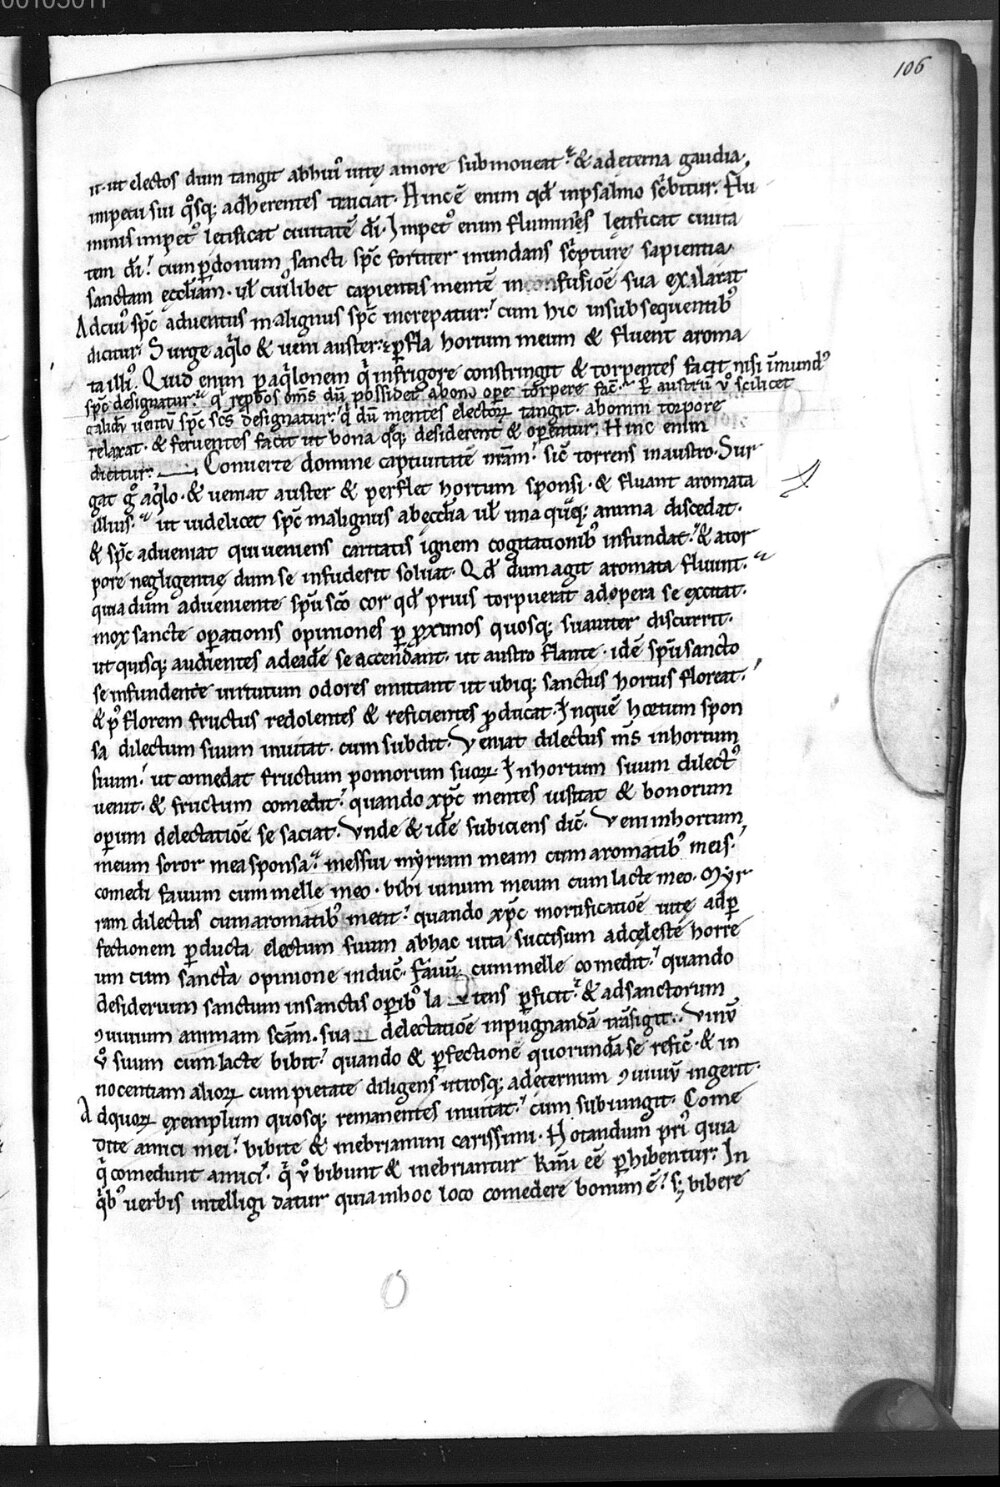 106
it. ut electos dum tangit abhui᷒ uitę amore submoueat. & adeterna gaudia,
impetu sui q̊sq; adherentes traiciat. Hinc ē enim qd̄ inpsalmo sc̄bitur. Flu
minis impet᷒ letificat ciuitatē dī. Impet᷒ enim fluminis lętificat ciuita
tem dī. cum ꝑdonum sancti sp̄c fortiter inundans sc̄pturę sapientia
sanctam ęccl̄iam. ul̄ cui᷒libet capientis mentē inconfusiōe sua exilarat
Adcui᷒ sp̄c aduentus malignus sp̄c increpatur. cum hic insubsequentib᷒
dicitur. Surge aq̇lo & ueni auster. ꝑfla hortum meum & fluent aroma
ta illi᷒. Quid enim p aq̇lonem q̇ infrigore constringit & torpentes facit nisi īmund᷒
sp̄c designatur. q̇ reꝓbos om̄s dū possidet abono oꝑe torpere fac̄. ꝑ austrū v̊ scilicet
calidū uentū sp̄c sc̄s designatur. q̇ dū mentes electoꝝ tangit. abomni torpore
relaxat. & feruentes facit ut bona q̄q; desiderent & oꝑentur. Hinc enim
dicitur. Conuerte domine captiuitatē nr̄am. sic̄ torrens inaustro. Sur
gat g̊ aq̇lo. & ueniat auster & perflet hortum sponsi. & fluant aromata
illius. ut uidelicet sp̄c malignus abęccl̄ia ul̄ una quęq; anima discedat.
& sp̄c adueniat qui ueniens caritatis ignem cogitationib᷒ infundat. & ator
pore negligentię dum se infuderit soluat. Qd̄ dum agit aromata fluunt.
quia dum adueniente sp̄u sc̄o cor qd̄ prius torpuerat adopera se excitat.
mox sanctę oꝑationis opiniones ꝑ ꝓximos quosq; suauiter discurrit.
ut quisq; audientes adeadē se accendant. ut austro flante. idē sp̄u sancto
se infundente uirtutum odores emittant ut ubiq; sanctus hortus floreat.
& p᷒ florem fructus redolentes & reficientes ꝓducat. Inquē hortum spon
sa dilectum suum inuitat. cum subdit. Veniat dilectus m̄s inhortum
suum. ut comedat fructum pomorum suoꝝ. Inhortum suum dilect᷒
uenit. & fructum comedit. quando xp̄c mentes uisitat & bonorum
oꝑum delectatiōe se saciat. Vnde & idē subiciens dic̄. Veni inhortum
meum soror mea sponsa. messui myrram meam cum aromatib᷒ meis.
comedi fauum cum melle meo. bibi uinum meum cum lacte meo. Myr
ram dilectus cum aromatib᷒ metit. quando xp̄c mortificatiōe uitę adꝑ
fectionem ꝑducta electum suum abhac uita succisum adcęlestē horre
um cum sancta opinione induc̄. Fauū cum melle comedit. quando
desiderium sanctum insanctis oꝑib᷒ la tens ꝑficit. & adsanctorum
ꝯuiuium animam sc̄am. sua delectatiōe inpugnandā trāsigit. Vinū
v̊ suum cum lacte bibit. quando & ꝑfectionē quorundā se refic̄. & in
nocentiam alioꝝ cum pietate diligens utrosq; adęternum ꝯuiuiū ingerit.
Adquoꝝ exemplum quosq; remanentes inuitat. cum subiungit. Come
dite amici mei. bibite & inebriamini carissimi. Notandum pri᷒ quia
q̇ comedunt amici. q̇ v̊ bibunt & inebriantur kmī eē ꝑhibentur. In
q̇b᷒ uerbis intelligi datur quia inhoc loco comedere bonum ē. s; bibere